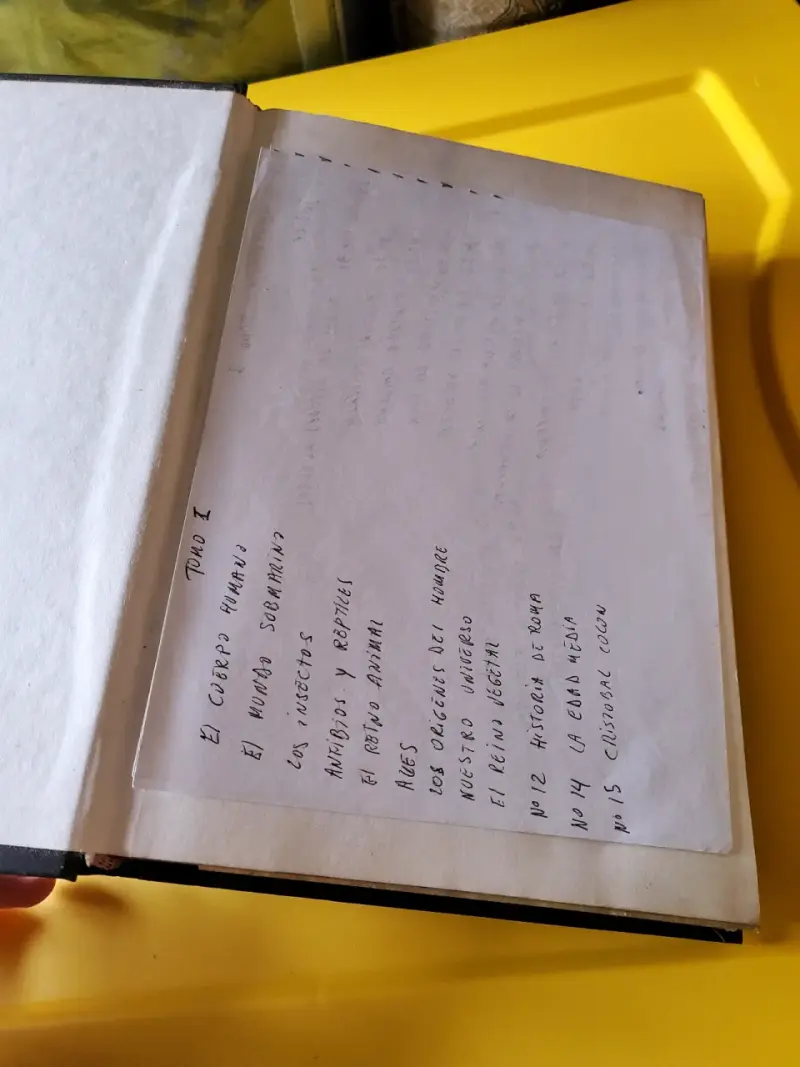 TOMO I
El CUERPO HUMANO
El MUNDO SUBMARINO
LOS INSECTOS
ANFIBIOS Y REPTILES
El REINO ANIMAL
AVES
LOS ORIGENES DEL HOMBRE
NUESTRO UNIVERSO
El REINO VEGETAL
Nº 12 HISTORIA DE ROMA
Nº 14 LA EDAD MEDIA
Nº 15 CRISTOBAL COLON